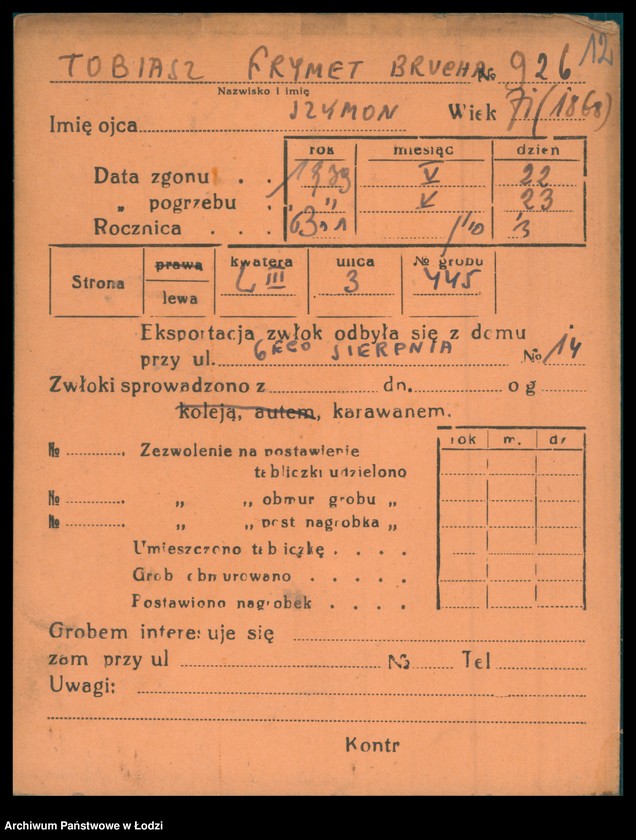 12
TOBIASZ FRYMET BRUCHA № 926
Nazwisko i imię
Imię ojca SZYMON Wiek 71 (1868)
rok miesiąc dzień
Data zgonu . . 1939 V 22
„ pogrzebu . „ V 23
Rocznica . . .
Strona prawa lewa kwatera L III ulica 3 № grobu 445
Eksportacja zwłok odbyła się z domu
przy ul. 6GO SIERPNIA № 14
Zwłoki sprowadzono z dn. o g
koleją, autem, karawanem.
rok m. dz
№ Zezwolenie na postawienie
tabliczki udzielono
№ „ „ obmur grobu „
№ „ „ post nagrobka „
Umieszczono tabliczkę . . . .
Grob obmurowano . . . . .
Postawiono nagrobek . . . .
Grobem interesuje się
zam przy ul № Tel
Uwagi:
Kontr
Archiwum Państwowe w Łodzi